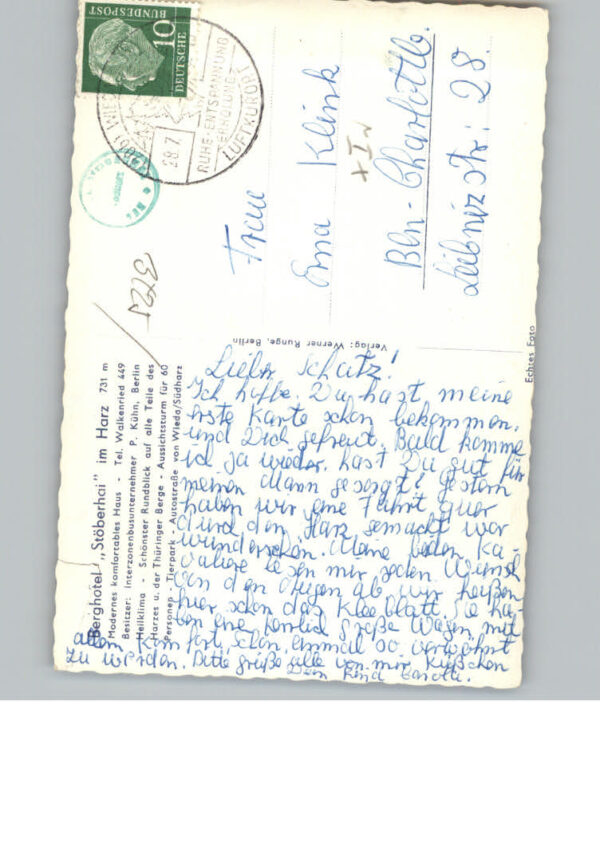 Berghotel „Stöberhai" im Harz 731 m
Modernes komfortables Haus - Tel. Walkenried 449
Besitzer: Interzonenbusunternehmer P. Kühn, Berlin
Heilklima - Schönster Rundblick auf alle Teile des
Harzes u. der Thüringer Berge - Aussichtsturm für 60
Personen - Tierpark - Autostraße von Wieda/Südharz
Verlag: Werner Runge, Berlin
Echtes Foto
DEUTSCHE
BUNDESPOST
10
28.7.
RUHE · ENTSPANNUNG
ERHOLUNG
LUFTKURORT
Frau
Erna Klink
Bln-Charlottb.
Leibnizstr: 28.
Lieber Schatz!
Ich hoffe, Du hast meine
erste Karte schon bekommen,
und Dich gefreut. Bald komme
ich ja wieder. hast Du gut für
meinen Mann gesorgt? Gestern
haben wir eine Fahrt quer
durch den Harz gemacht war
wunderschön. Meine beiden Ka-
valiere lesen mir jeden Wunsch
von den Augen ab, wir heißen
hier schon das Kleeblatt. Sie ha-
ben eine herrlich große Wagen, mit
allem Komfort, schön einmal so verwöhnt
zu werden. Bitte grüße alle von mir. Küßchen
Dein